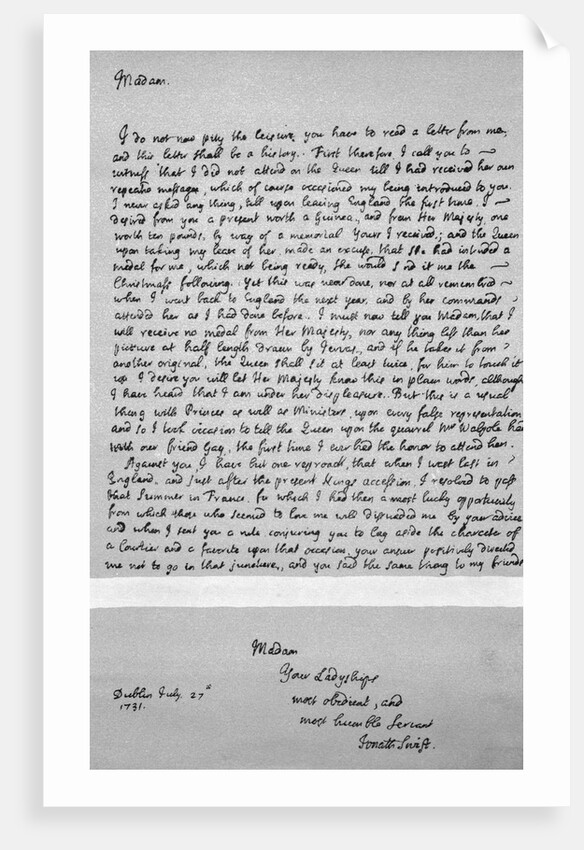 Madam.
I do not now pity the leisure you have to read a letter from me,
and this letter shall be a history. First therefore, I call you to
witness that I did not attend on the Queen till I had received her own
repeated messages, which of course occasioned my being introduced to you.
I never asked any thing, till upon leaving England the first time, I
desired from you a present worth a Guinea, and from Her Majesty, one
worth ten pounds, by way of a memorial Yours I received; and the Queen
upon taking my leave of her, made an excuse, that She had intended a
medal for me, which not being ready, she would send it me the
Christmass following. Yet this was never done, nor at all remembred
when I went back to England the next year, and by her commands
attended her as I had done before. I must now tell you Madam, that I
will receive no medal from Her Majesty, nor any thing less than her
picture at half length drawn by Jervas, and if he takes it from
another original, the Queen shall sit at least twice, for him to touch it
up I desire you will let Her Majesty know this in plain words, although
I have heard that I am under her displeasure. But this is a usual
thing with Princes as well as Ministers, upon every false representation
and so I took occasion to tell the Queen upon the quarrel Mr Walpole had
with our friend Gay, the first time I ever had the honor to attend her.
Against you I have but one reproach, that when I was last in
England, and just after the present Kings accession, I resolved to pass
that Summer in France, for which I had then a most lucky opportunity
from which those who seemed to love me well dissuaded me by your advice
and when I sent you a note conjuring you to lay aside the character of
a Courtier and a favorite upon that occasion, your answer positively directed
me not to go in that juncture, and you said the same thing to my friends
Madam
Your Ladyships
most obedient, and
most humble Servant
Jonath Swift.
Dublin July. 27th
1731.